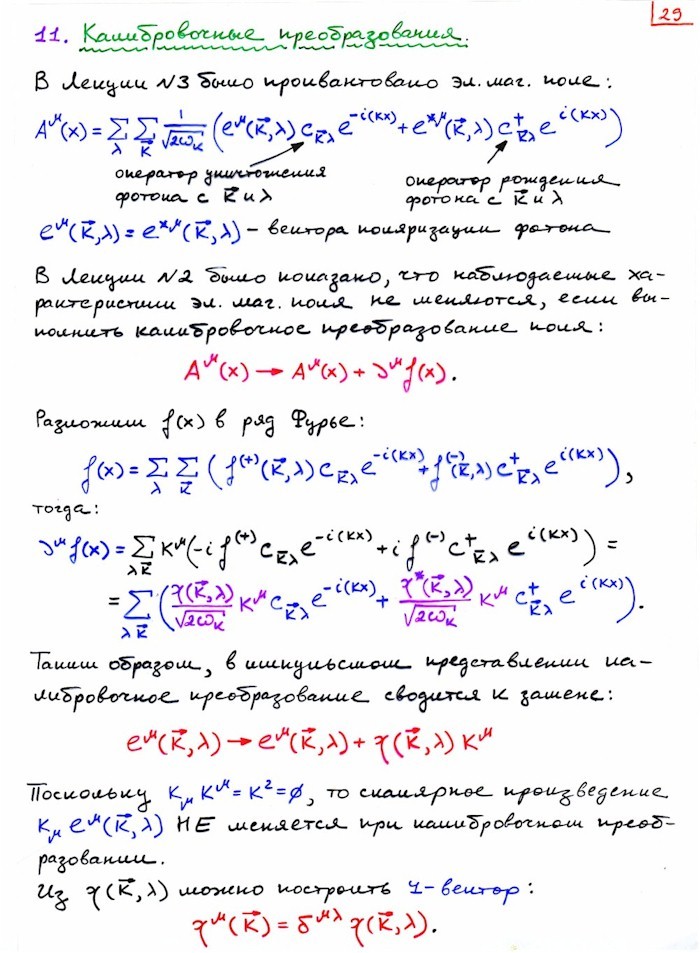 29
11. Калибровочные преобразования.
В Лекции №3 было проквантовано эл. маг. поле:
A^μ(x) = Σ_λ Σ_k⃗ 1/√(2ω_k) (e^μ(k⃗,λ) c_k⃗λ e^{-i(kx)} + e^{*μ}(k⃗,λ) c^+_k⃗λ e^{i(kx)})
оператор уничтожения оператор рождения
фотона с k⃗ и λ фотона с k⃗ и λ
e^μ(k⃗,λ) = e^{*μ}(k⃗,λ) – вектора поляризации фотона
В Лекции №2 было показано, что наблюдаемые ха-
рактеристики эл. маг. поля не меняются, если вы-
полнить калибровочное преобразование поля:
A^μ(x) → A^μ(x) + ∂^μ f(x).
Разложим f(x) в ряд Фурье:
f(x) = Σ_λ Σ_k⃗ (f^{(+)}(k⃗,λ) c_k⃗λ e^{-i(kx)} + f^{(-)}(k⃗,λ) c^+_k⃗λ e^{i(kx)}),
тогда:
∂^μ f(x) = Σ_λk⃗ k^μ(-i f^{(+)} c_k⃗λ e^{-i(kx)} + i f^{(-)} c^+_k⃗λ e^{i(kx)}) =
= Σ_λk⃗ (η(k⃗,λ)/√(2ω_k) k^μ c_k⃗λ e^{-i(kx)} + η^*(k⃗,λ)/√(2ω_k) k^μ c^+_k⃗λ e^{i(kx)}).
Таким образом, в импульсном представлении ка-
либровочное преобразование сводится к замене:
e^μ(k⃗,λ) → e^μ(k⃗,λ) + η(k⃗,λ) k^μ
Поскольку k_μ k^μ = k² = ∅, то скалярное произведение
k_μ e^μ(k⃗,λ) НЕ меняется при калибровочном преоб-
разовании.
Из η(k⃗,λ) можно построить 4-вектор:
η^μ(k⃗) = δ^{μλ} η(k⃗,λ).